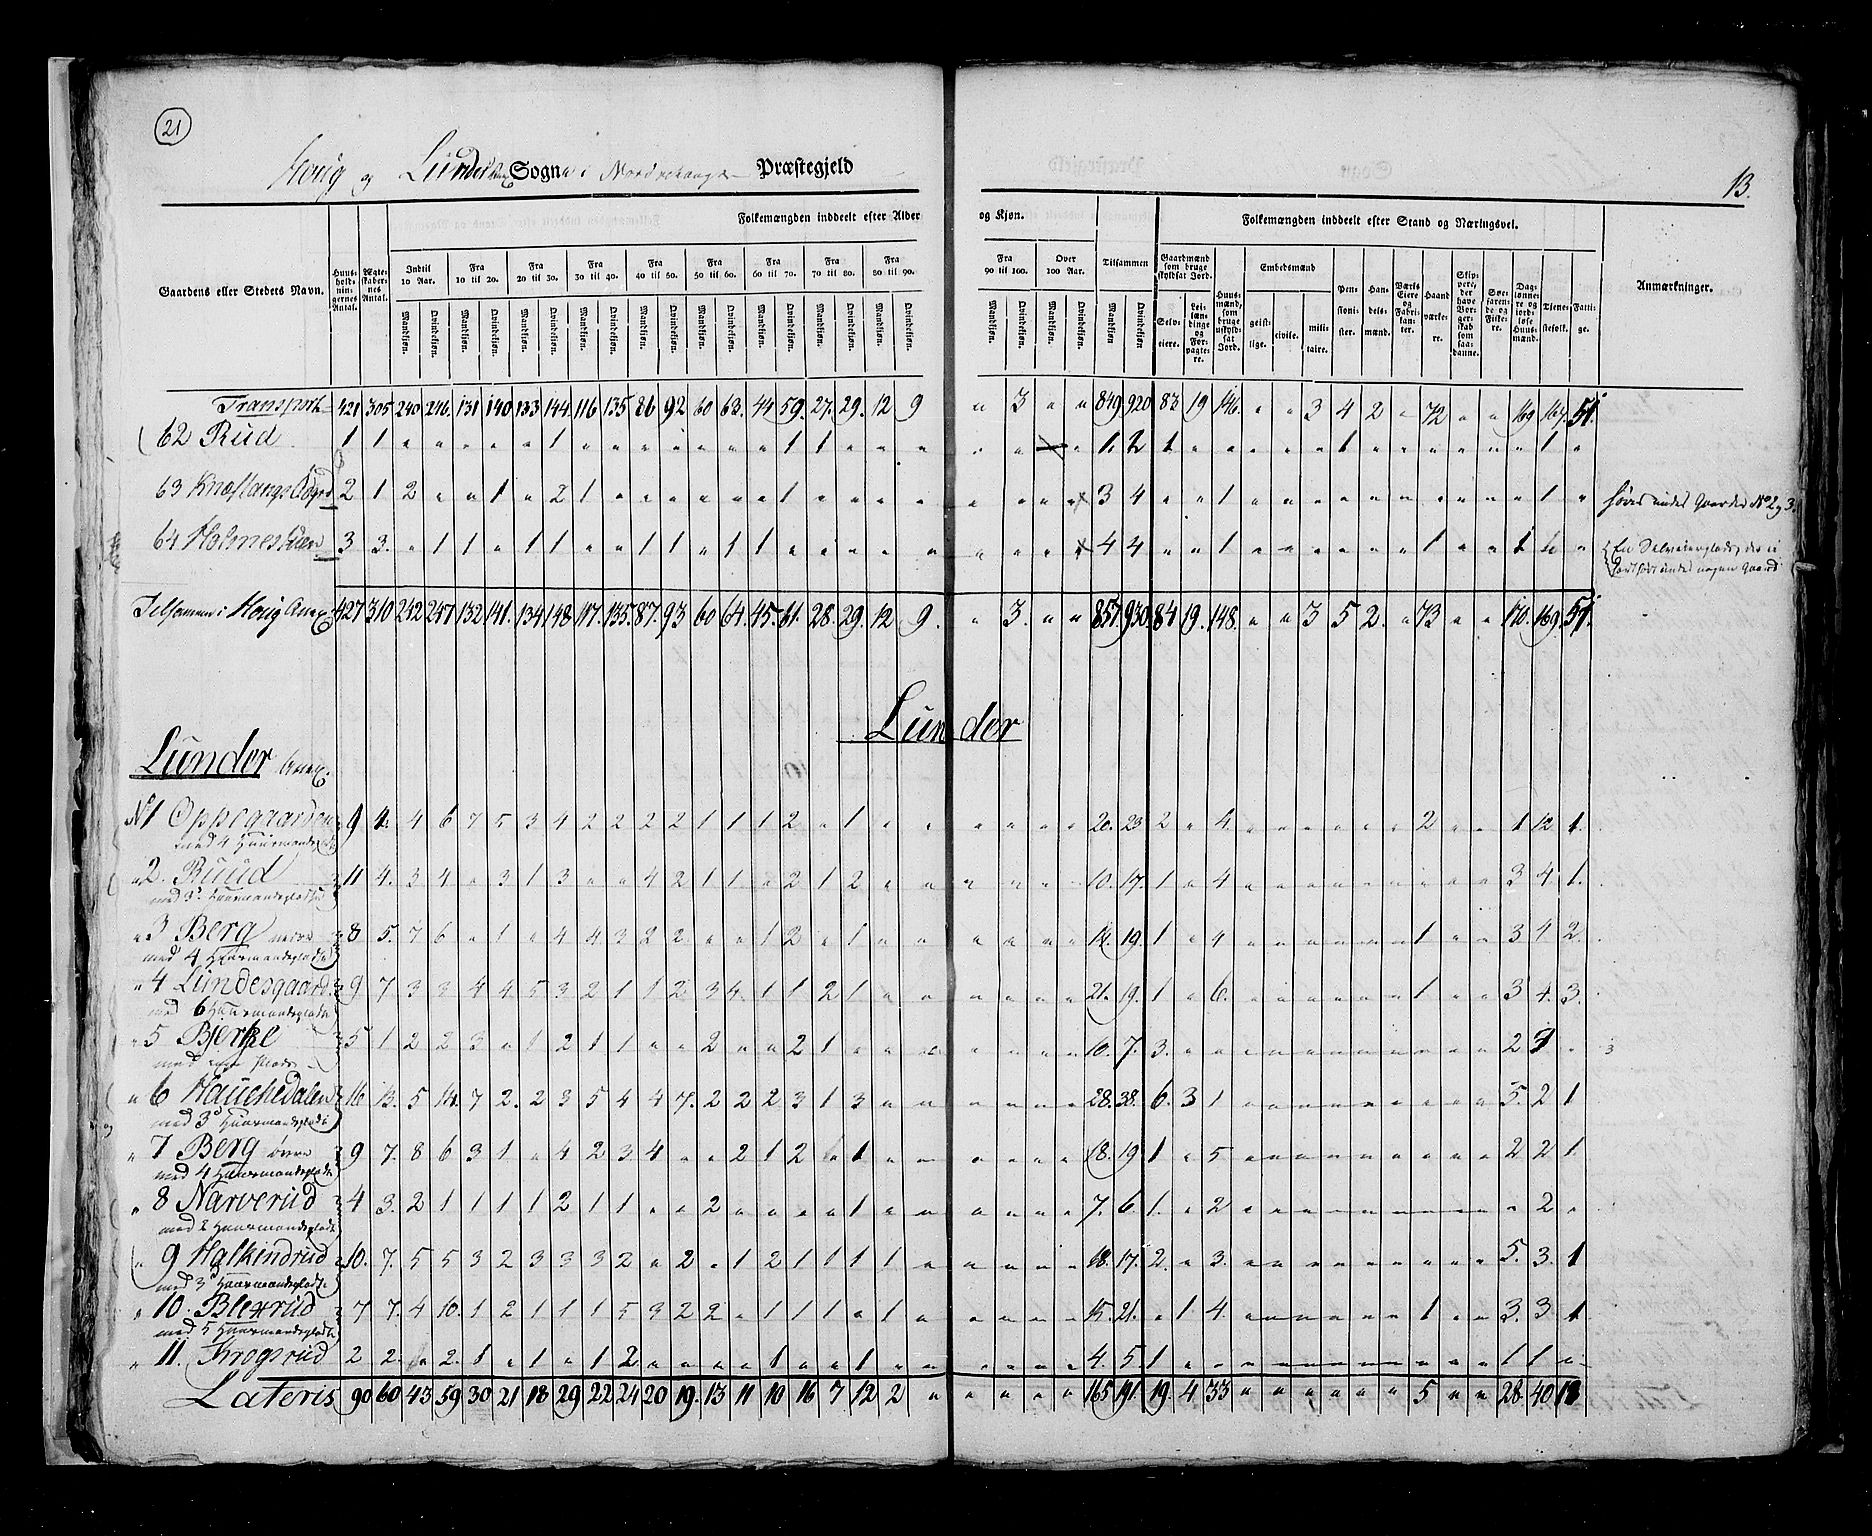 21
Houg og Lunder Sogne i Norderhoug Præstegjeld
13.
Folkemængden inddeelt efter Alder og Kjøn.
Folkemængden inddeelt efter Stand og Næringsvei.
Gaardens eller Stedets Navn.
Huusholdningernes Antal.
Ægteskabernes Antal.
Indtil 10 Aar.
Fra 10 til 20.
Fra 20 til 30.
Fra 30 til 40.
Fra 40 til 50.
Fra 50 til 60.
Fra 60 til 70.
Fra 70 til 80.
Fra 80 til 90.
Fra 90 til 100.
Over 100 Aar.
Tilsammen
Mandkjøn. Qvindekjøn.
Gaardmænd som bruge skyldsat Jord.
Selveiere.
Leilændinge og Forpagtere.
Huusmænd, som bruge uskyldsat Jord.
Embedsmænd
geistlige. civile. militaire.
Pensionister.
Handelsmænd.
Værks Eiere og Fabrikanter.
Haandværkere.
Skippere, der have Borgerskab som saadanne.
Søefarende og Fiskere.
Daglønnere og jordløse Huusmænd.
Tienestefolk.
Fattige.
Anmærkninger.
Transport 421 305 240 246. 131 140 133 144. 116 135 86 92 60 63. 44 59. 27. 29. 12 9 " 3 " " 849 920 83 19 146. " " 3 4 2 " 72 " " 169 167. 51.
62 Rud 1 1 " " " " " 1 " " " " " " 1 1 " " " " " " " 1. 2 1 " " " " " 1 " " " " " " 1 "
63 2 1 2 " " 1 " 2 1 " " " " " 1 " " " " " " " " 3 4 " " 1 " " " " " " " " " " 1 "
64 3 3. " 1 1 " 1 1 " " 1 1 " 1 1 " " " " " " " 4 4
Tilsammen i Houg Anex 427 310 242 247 132 141. 134 148. 117. 135. 87. 93 60 64. 45. 61. 28. 29. 12 9. " 3. " " 857. 930. 84 19. 148. " " 3 5 2. " 73 " " 170. 169. 51.
Lunder
Lunder Anex.
No 1 Oppegaarden 9 4. 4 6 7 5 3 4 2 2 2 2 1 1 1 2 " 1 " " " " " " 20. 23 2 " 4. " " " " " " 2 " " 1 12 1.
med 4 Huusmandsplads
" 2. Ruud 11 4. 3 4 " 3 1 3 " " 4 2 1 1 " 2 1 2 " " " " " " 10. 17. 1 " 4 " " " " " " " " " 3 4 1.
med 3
" 3 Berg nedre 8 5. 7 6 " 1 " 4 4 3 2 2 " " 1 2 " 1 " " " " " " 14. 19. 1 " 4 " " " " " " 1 " " 3 4 2
med 4 Huusmandsplads
" 4 Lundesgaard. 9 7 3 3 4 4 5 3 2 1 1 2 3 4. 1 1 2 1 " " " " " " 21. 19. 1 " 6. " " " " " " 1 " " 3 4. 3.
med 6 Huusmandsplads
" 5 Bjerke 5 1 2 2 3 " 1 2 1 1 " " 2 " " 2 1 " " " " " " " 10. 7. 3. " " " " " " " " " " " 2 3 "
" 6 Hauchedalen 16 13. 5 14. 7 2. 2 3 5 4 4 7. 2 2 2 3 1 3 " " " " " " 28. 38. 6. 3 1 " " " " " " " " " 5. 2 1
med 3
" 7 Berg øvre 9 7. 8 6 3 1 " 4 2 3 4 " " 2 1 2 " 1 " " " " " " 18. 19 1 " 5 " " " " " " " " " 2 2 1
med 4 Huusmandsplads
" 8 Narverud 4 3. 2 1 1 1 1 2 1 1 " " 2 " " " " 1 " " " " " " 7. 6. 1. " 2 " " " " " " " " " " 2 "
med 2 Huusmandsplads
" 9 Halkindrud 10. 7. 5 5 3 2 3 3 3 2 " 2 " 1 2 1 1 1 1 " " " " " 18. 17. 2. " 3. " " " " " " " " " 5. 3. 1
med 3
" 10. Blexrud 7 7. 4 10. 1 2 1 1 1 5 3 2 2 " 1 1 1 " 1 " " " " " 15. 21. " 1 4. " " " " " " 1 " " 3. 3. 1
med 5 Huusmandsplads
" 11. Krogsrud 2 2. " 2. 1 " 1 " 1 2 " " " " 1 " " 1 " " " " " " 4. 5. 1 " " " " " " " " " " " 1 1 "
Lateris 90 60 43 59 30 21 18 29 22 24 20 19. 13 11 10 16 7 12 2 " " " " " 165 191. 19 4 33 " " " " " " 5 " " 28. 40